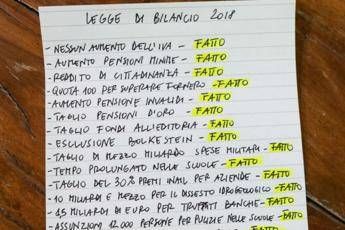 LEGGE DI BILANCIO 2018
- NESSUN AUMENTO DELL'IVA - FATTO
- AUMENTO PENSIONI MINIME - FATTO
- REDDITO DI CITTADINANZA - FATTO
- QUOTA 100 PER SUPERARE FORNERO - FATTO
- AUMENTO PENSIONE INVALIDI - FATTO
- TAGLIO PENSIONI D'ORO - FATTO
- TAGLIO FONDI ALL'EDITORIA - FATTO
- ESCLUSIONE BOLKESTEIN - FATTO
- TAGLIO DI MEZZO MILIARDO SPESE MILITARI - FATTO
- TEMPO PROLUNGATO NELLE SCUOLE - FATTO
- TAGLIO DEL 30% PREMI INAIL PER AZIENDE - FATTO
- 10 MILIARDI E MEZZO PER IL DISSESTO IDROGEOLOGICO - FATTO
- 1,5 MILIARDI DI EURO PER TRUFFATI BANCHE - FATTO
- ASSUNZIONI 12.000 PERSONE PER PULIZIE NELLE SCUOLE - FATTO